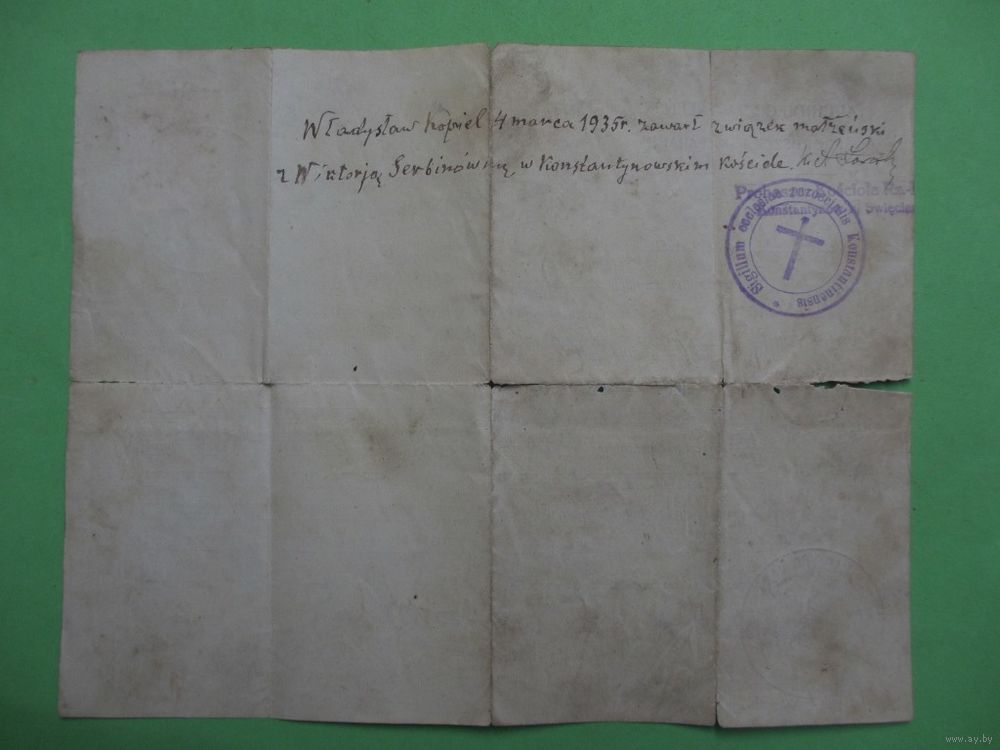 Władysław Kopiel 4 marca 1935r. zawarł związek małżeński
z Wiktorją Serbinówną, w Konstantynowskim kościele.
Proboszcz Kościoła Rz.-
Konstantynow Święcia
Sigillum ecclesiae parochialis Konstantinensis *
www.ay.by